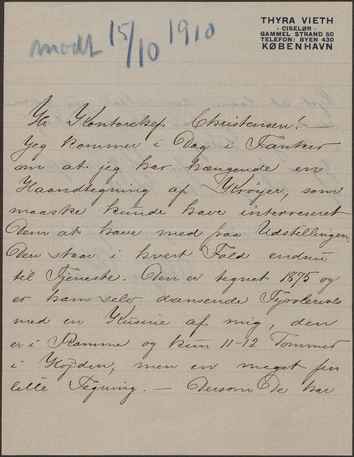 THYRA VIETH
- CISELØR -
GAMMEL STRAND 50
TELEFON: BYEN 430
KØBENHAVN
modt 15/10 1910
Hr Kontorchef Christensen! —
Jeg kommer i Dag i Tanker
om at jeg har hængende en
Haandtegning af Krøyer, som
maaske kunde have interesseret
Dem at have med paa Udstillingen
Den staar i hvert Fald endnu
til Tjeneste. Den er tegnet 1875 og
er ham selv dansende Tyrolervals
med en Kusine af mig, den
er i Ramme og kun 11-12 Tommer
i Højden, men en meget fin
lille Tegning. — Dersom De har